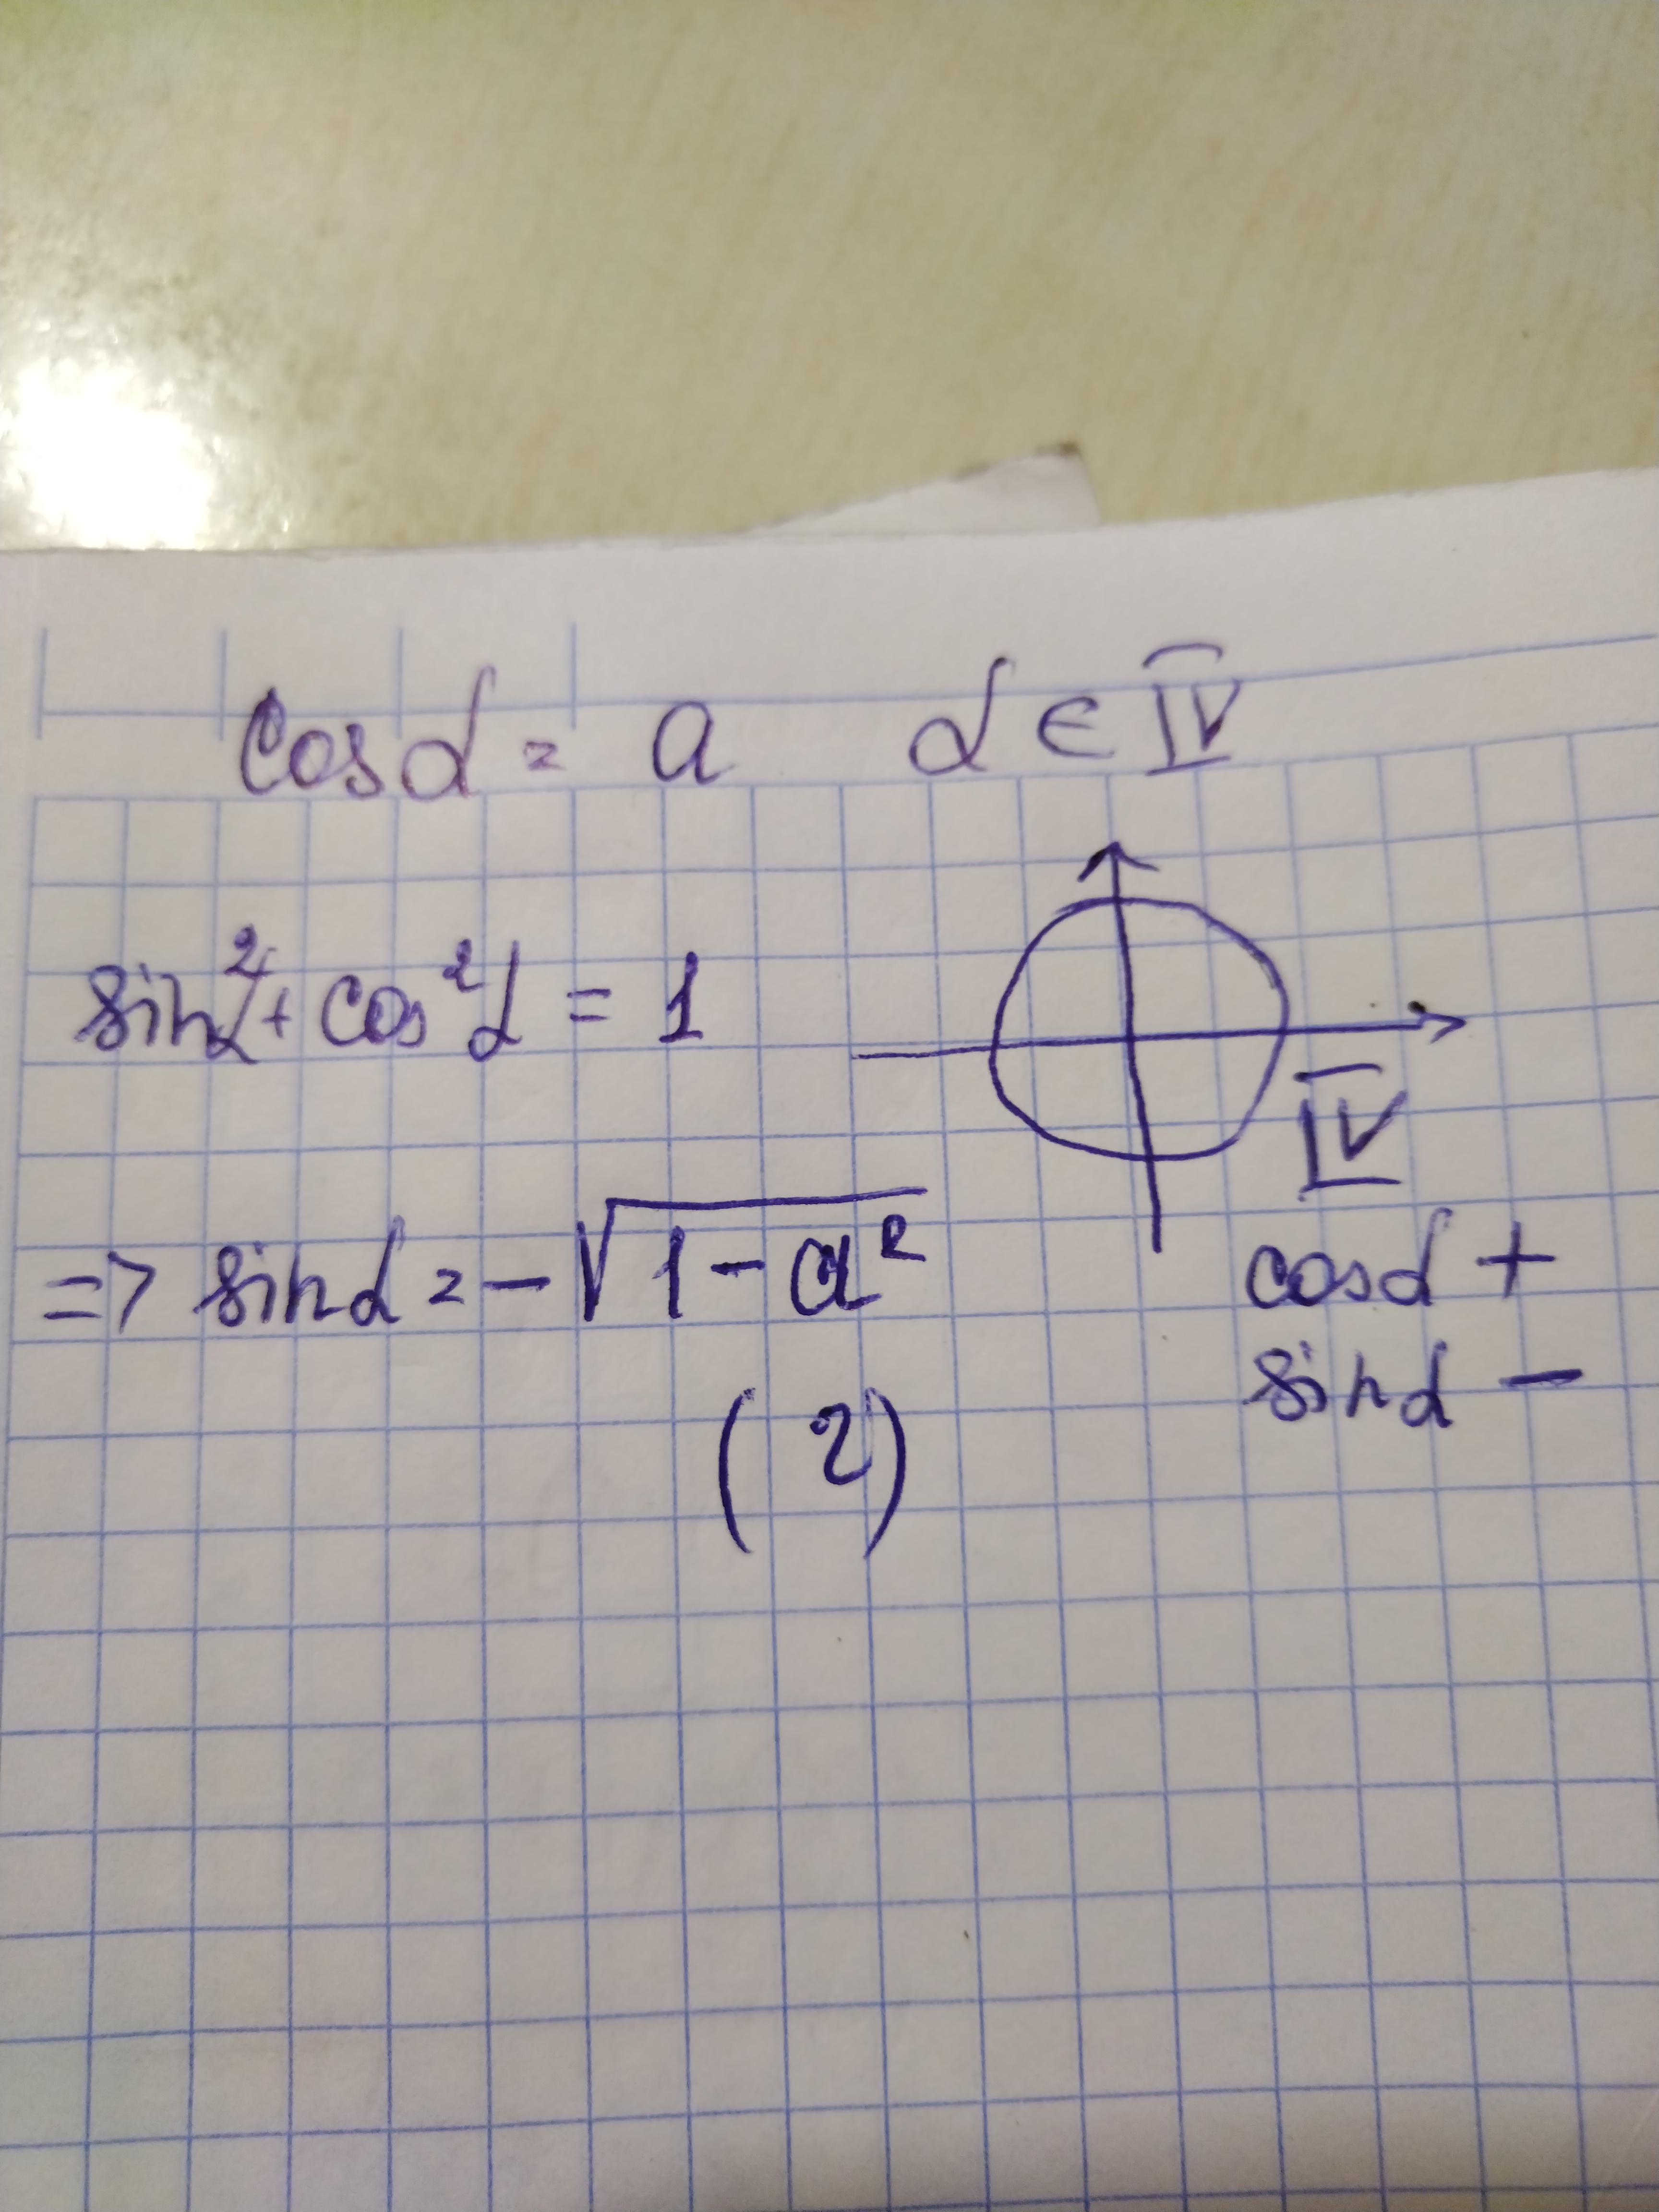 cosα = a α ∈ IV
sin²α + cos²α = 1
IV
=> sinα = -√(1-a²)
cosα +
sinα -
(2)